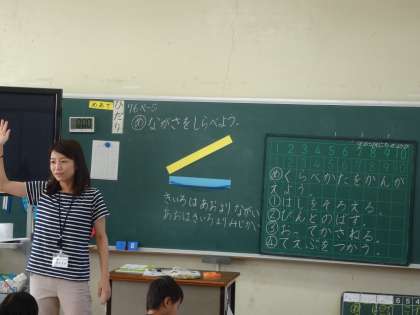 めあて
ひだり
76ページ
めながさをしらべよう。
きいろはあおよりながい
あおはきいろよりみじかい
1 2 3 4 5 6 7 8 9 10
めくらべかたをかんが
えよう
①はしをそろえる。
②ぴんとのばす。
③おってかさねる。
④てえぷをつかう。